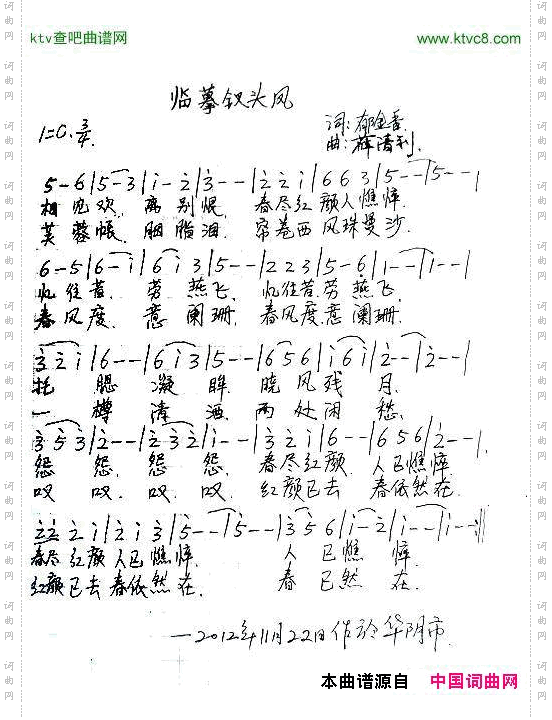 ktv查吧曲谱网 www.ktvc8.com
临摹钗头凤
1=C 3/4
词:郁金香
曲:薛清利
5-6|5-3|i-2|3--|2 2 i|6 6 3|5--|5--|
相见欢 离别恨 春尽红颜人憔悴
芙蓉帐 胭脂泪 帘卷西风珠曼沙
6-5|6-i|6 i 3|5--|2 2 3|5-6|1--|1--|
忆往昔 劳燕飞 忆往昔劳燕飞
春风度 意阑珊 春风度意阑珊
3 2 i|6--|6 i 3|5--|6 5 6|i 6 i|2--|2--|
托腮凝眸 晓风残月
一樽清酒 两处闲愁
3 5 3|2--|2 3 2|i--|3 2 i|6--|6 5 6|2--|
怨 怨 怨 怨 春尽红颜 人已憔悴
叹 叹 叹 叹 红颜已去 春依然在
22 2 i|2 i 3|5--|5--|3 5 6|i-2|i--|i--||
春尽红颜人已憔悴 人已憔悴
红颜已去春依然在 春已然在
—2012年11月22日作於华阴市
本曲谱源自 中国词曲网